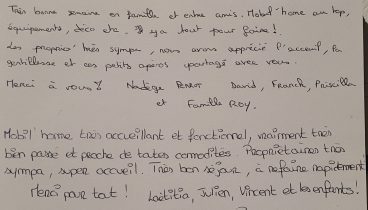 Très bonne semaine en famille et entre amis. Mobil'home au top,
équipements, déco etc. Il y a tout pour faire !
Les proprios très sympa, nous avons apprécié l'accueil, la
gentillesse et ces petits apéros partagés avec vous.
Merci à vous ! Nadège David, Franck, Priscilla
et Famille ROY.
Mobil'home très accueillant et fonctionnel, vraiment très
bien passé et proche de toutes commodités. Propriétaires très
sympa, super accueil. Très bon séjour, à refaire rapidement
Merci pour tout ! Laëtitia, Julien, Vincent et les enfants !